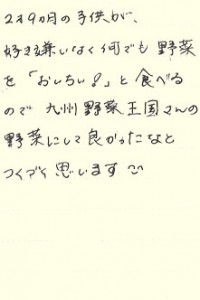 2才9ヵ月の子供が、
好き嫌いなく何でも野菜
を「おいちい!」と食べる
ので 九州野菜王国さんの
野菜にして良かったなと
つくづく思います